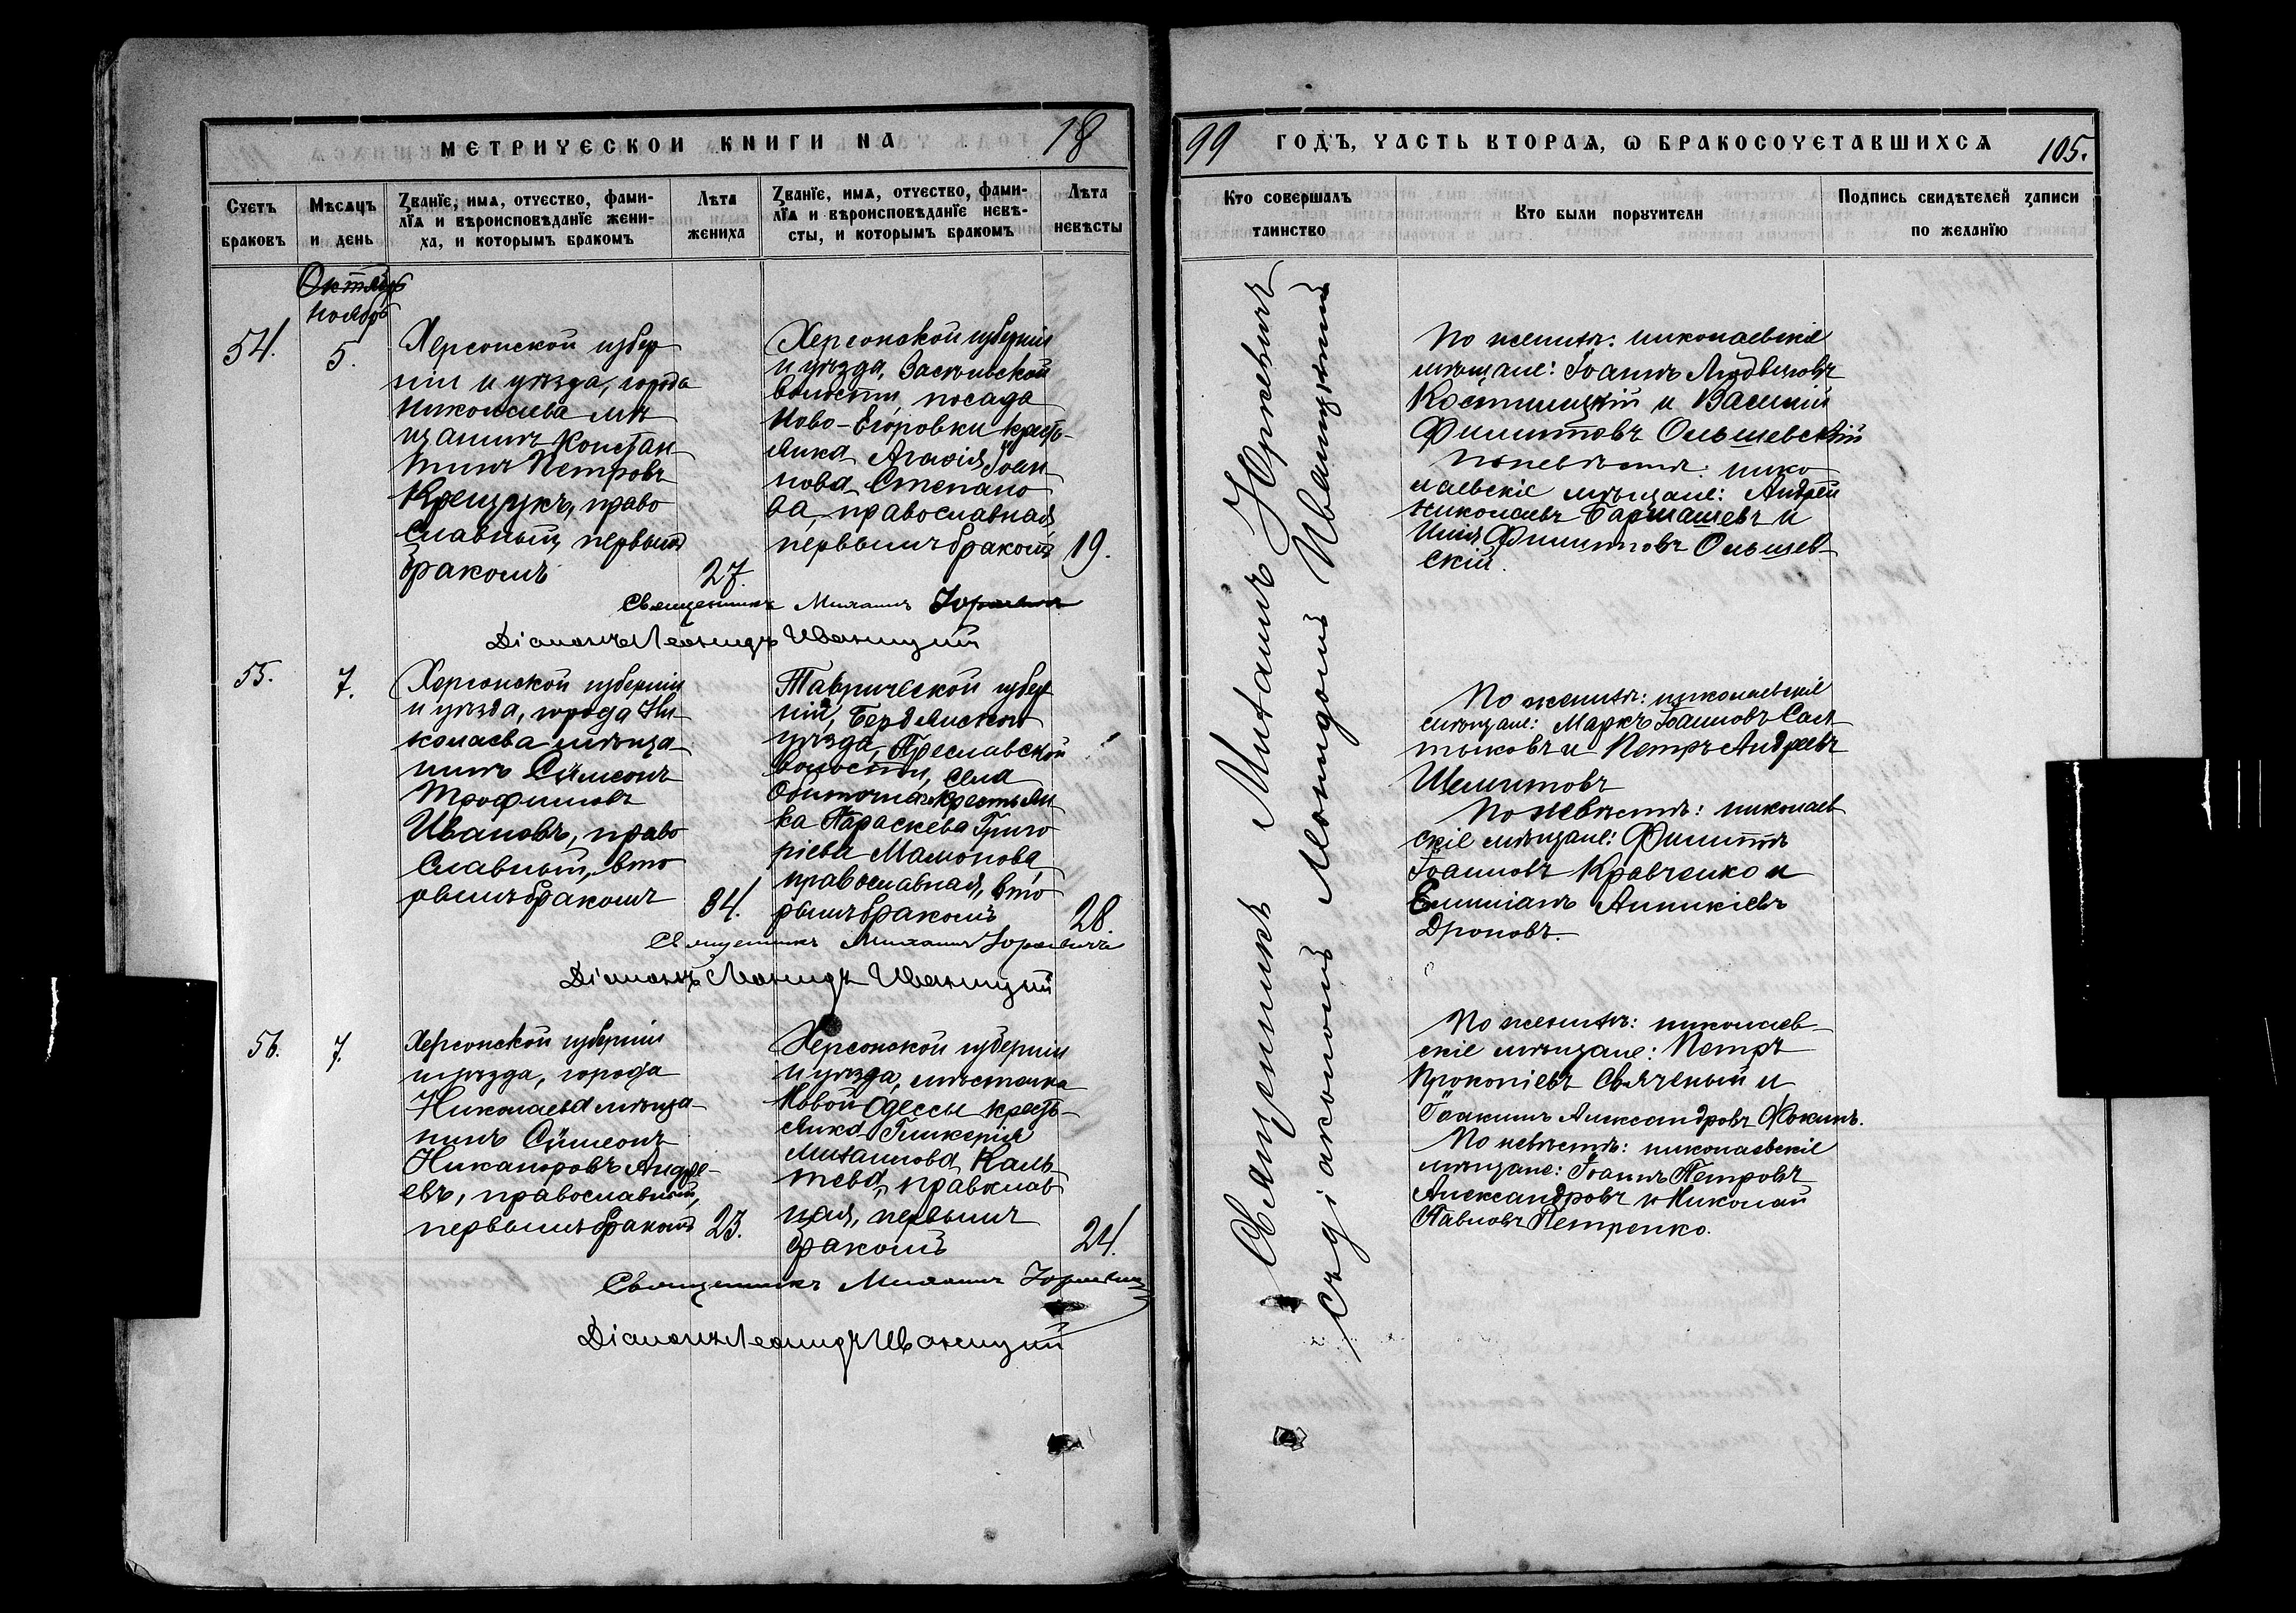 МЕТРИЧЕСКОИ КНИГИ НА 18
Счетъ браковъ
Мѣсяцъ и день
Званїе, имя, отчество, фами-
лїя и вѣроисповѣданїе жени-
ха, и которымъ бракомъ
Лѣта жениха
Званїе, имя, отчество, фами-
лїя и вѣроисповѣданїе невѣ-
сты, и которымъ бракомъ
Лѣта невѣсты
Октябрь
Ноябрь
54.
5.
Херсонской губер
нiи и уѣзда, города
Николаева мѣ
щанинъ Констан
тинъ Петровъ
Крещукъ, право
славный, первымъ
бракомъ
27.
Херсонской губернiи
и уѣзда, Засельской
волости, посада
Ново-Егоровки кресть-
янка Агафiя Iоан
нова Степано
ва, православная,
первымъ бракомъ
19.
Священникъ Михаилъ Юркевичъ
Дiаконъ Леонидъ Иваницкiй
55.
7.
Херсонской губернiи
и уѣзда, города Ни-
колаева мѣща-
нинъ Сѵмеонъ
Трофимовъ
Ивановъ, право
славный, вто
рымъ бракомъ
34.
Таврической губер
нiи, Бердянскаго
уѣзда, Преславской
волости, села
Обиточнаго крестьян
ка Параскева Григо
рiева Мамонова
православная, вто
рымъ бракомъ
28.
Священникъ Михаилъ Юркевичъ
Дiаконъ Леонидъ Иваницкiй
56.
7.
Херсонской губернiи
и уѣзда, города
Николаева мѣща-
нинъ Сѵмеонъ
Никаноровъ Андре-
евъ, православный,
первымъ бракомъ
23.
Херсонской губернiи
и уѣзда, мѣстечка
Новой Одессы кресть-
янка Гликерiя
Михаилова Каль
тева, православ
ная, первымъ
бракомъ
24.
Священникъ Михаилъ Юркевичъ
Дiаконъ Леонидъ Иваницкiй
99 ГОДЪ, ЧАСТЬ ВТОРАЯ, Ѡ БРАКОСОЧЕТАВШИХСЯ 105.
Кто совершалъ таинство
Кто были поручители
Подпись свидѣтелей записи
по желанїю
Священникъ Михаилъ Юркевичъ
съ дiакономъ Леонидомъ Иваницкимъ
По женихѣ: николаевскiе
мѣщане: Iоаннъ Людвиговъ
Костницкiй и Василiй
Филипповъ Ольшевскiй
По невѣстѣ: нико
лаевскiе мѣщане: Андрей
Николаевъ Барташевъ и
Илiя Филипповъ Ольшев-
скiй.
По женихѣ: николаевскiе
мѣщане: Маркъ Iоанновъ Сал
тыковъ и Петръ Андреевъ
Шемитовъ
По невѣстѣ: николаев
скiе мѣщане: Филиппъ
Iоанновъ Кравченко и
Емилiанъ Аникiевъ
Дроновъ.
По женихѣ: николаев-
скiе мѣщане: Петръ
Прокопiевъ Свяченый и
Iоакимъ Александровъ Фокинъ.
По невѣстѣ: николаевскiе
мѣщане: Iоаннъ Петровъ
Александровъ и Николай
Павловъ Петренко.